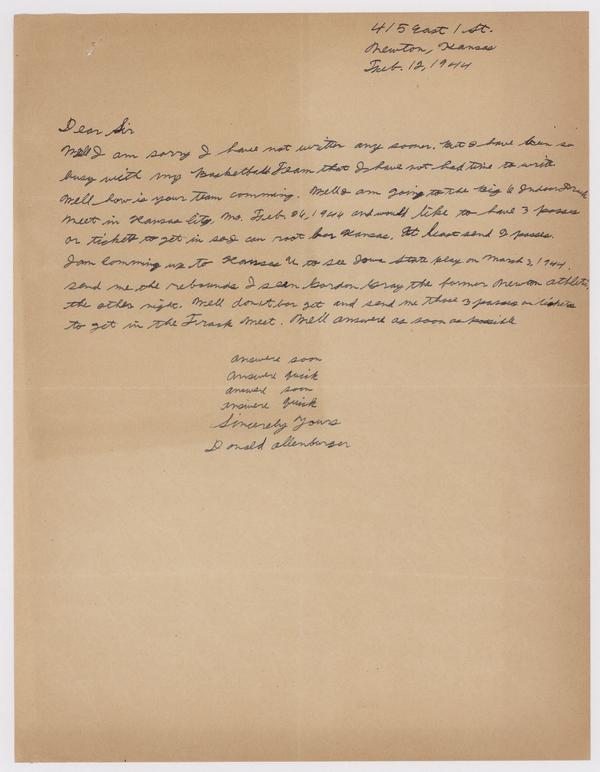 415 East 1 St.
Newton, Kansas
Feb. 12, 1944
Dear Sir
Well I am sorry I have not writer any sooner. But I have been so
busy with my Basketball Team that I have not had time to write
Well how is your team comming. Well I am going to the Big 6 Indoor Track
Meet in Kansas City, Mo. Feb. 26, 1944 and would like to have 3 passes
or tickets to get in so I can root for Kansas. At least send 2 passes.
I am comming up to Kansas U to see Iowa State play on March 3, 1944.
send me the rebounds I seen Gordon Gray the former Newton athlete,
the other night. Well don't for get and send me those 3 passes or tickets
to get in the Track Meet. Well answere as soon as possible
answere soon
answere quick
answere soon
answere quick
Sincerely Yours
Donald Ollenburger